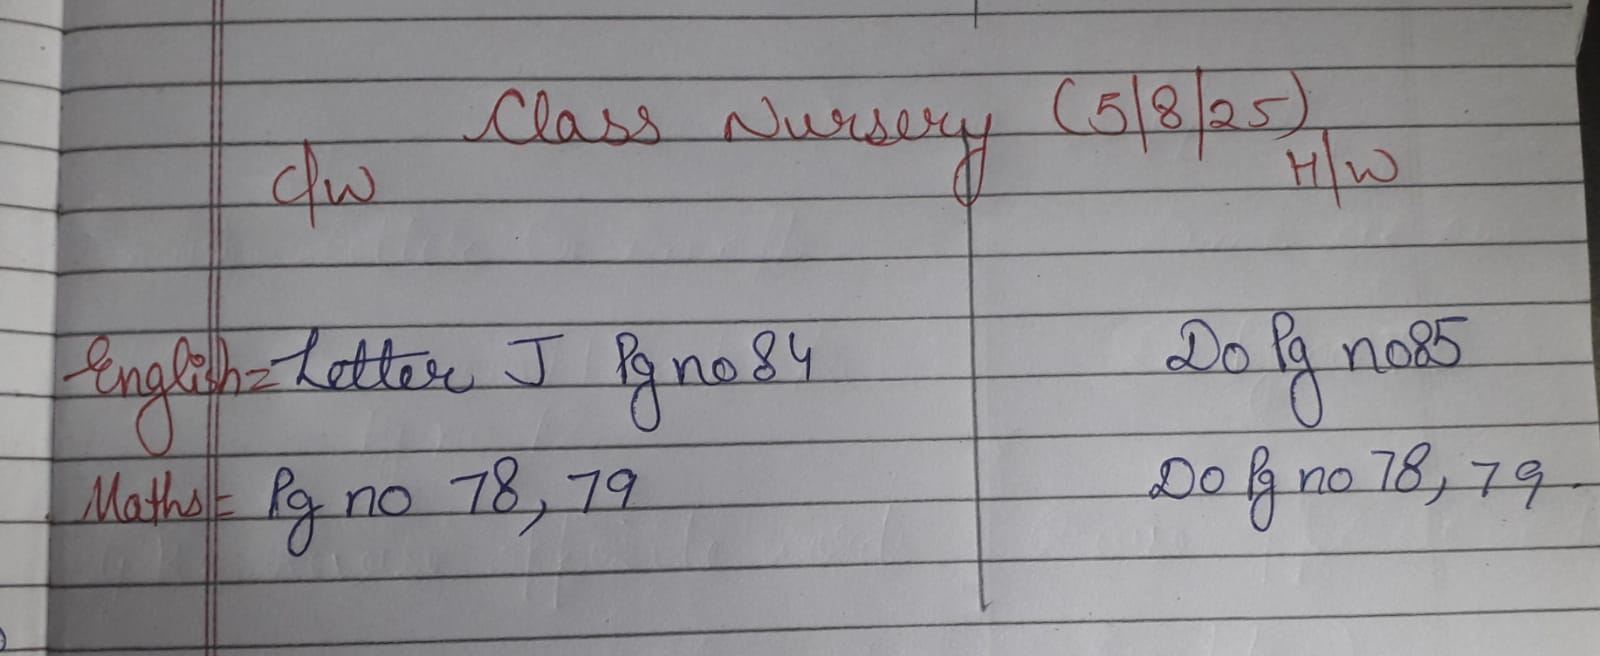 Class Nursery (5/8/25)
C/W H/W
English = Letter J Pg no 84 Do Pg no 85
Maths = Pg no 78, 79 Do Pg no 78, 79.